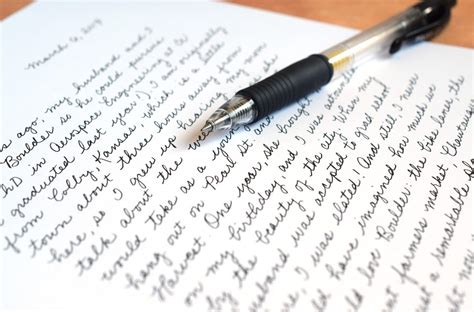 March 6,
s ago, my husband and I
Boulder so he could pursue
hD in Aerospace Engineering at C
graduated last year!) I am originally
from Colby, Kansas, which is a little
town about three hours away from
here, so I grew up hearing my mom
talk about the
would take as a
hang out on Pearl St. and
Harvest. One year, she brought
on my birthday and I was
the beauty of the city. When my
usband was accepted to grad school
here, I was elated! And still, I never
ld have imagined how much we
ld love Boulder: the bike lanes, the
farmers market
a remarkable